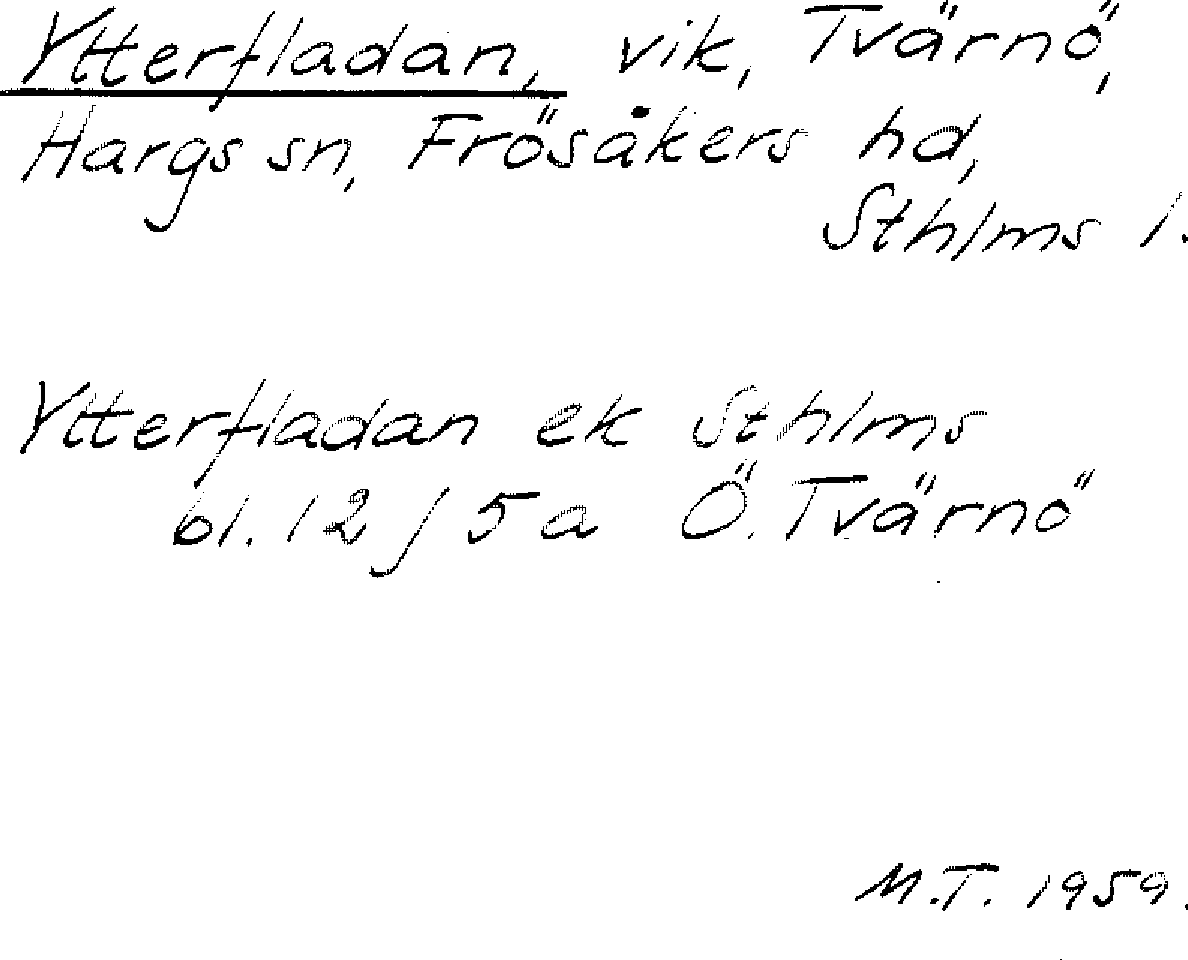 Ytterfladan, vik, Tvärnö,
Hargs sn, Frösåkers hd,
Sthlms l.
Ytterfladan ek Sthlms
bl. 12 J 5a Ö. Tvärnö
M.T. 1959.